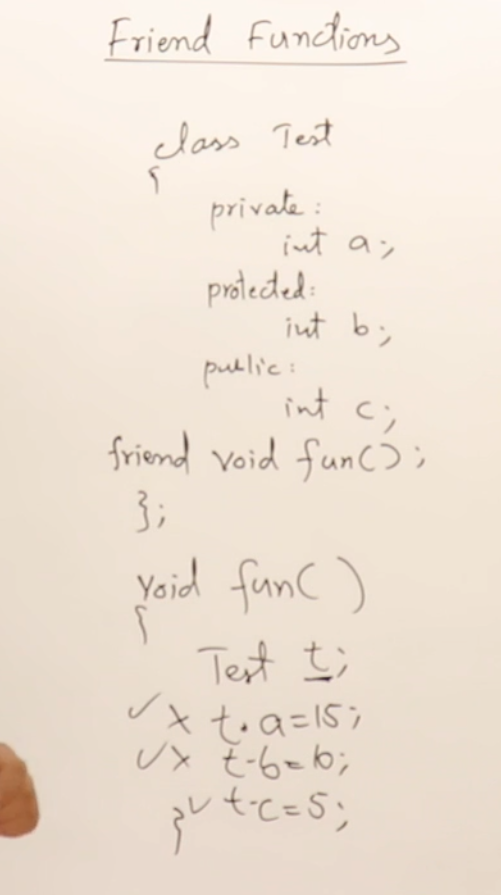 Friend Functions
class Test
{
private:
int a;
protected:
int b;
public:
int c;
friend void fun();
};
void fun()
{
Test t;
✓ x t.a=15;
✓ x t.b=10;
} ✓ t.c=5;